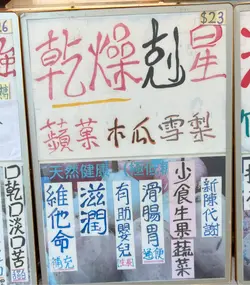 $23
乾燥剋星
蘋菓木瓜雪梨
天然健康
新陳代謝
少食生果蔬菜
滑腸胃
通便
有助嬰兒
生長
滋潤
維他命
補充
口乾口淡口苦